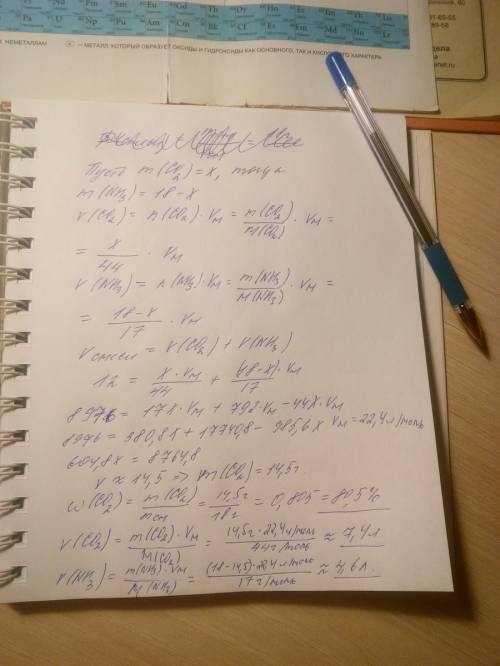 НЕМЕТАЛЛАМ
— МЕТАЛЛ, КОТОРЫЙ ОБРАЗУЕТ ОКСИДЫ И ГИДРОКСИДЫ КАК ОСНОВНОГО, ТАК И КИСЛОТНОГО ХАРАКТЕРА
Пусть m(CO₂) = x, тогда
m(NH₃) = 18 - x
V(CO₂) = n(CO₂) · Vм = m(CO₂)/M(CO₂) · Vм =
= x/44 · Vм
V(NH₃) = n(NH₃) · Vм = m(NH₃)/M(NH₃) · Vм =
= 18-x/17 · Vм
V смеси = V(CO₂) + V(NH₃)
12 = x · Vм/44 + (18-x) · Vм/17
8976 = 17x · Vм + 792 · Vм - 44x · Vм
8976 = 380,8x + 17740,8 - 985,6x Vм = 22,4 л/моль
604,8x = 8764,8
x ≈ 14,5 => m(CO₂) = 14,5г.
ω(CO₂) = m(CO₂)/mсм = 14,5г/18г = 0,805 = 80,5%
V(CO₂) = m(CO₂) · Vм/M(CO₂) = 14,5г · 22,4 л/моль/44 г/моль ≈ 7,4л
V(NH₃) = m(NH₃) · Vм/M(NH₃) = (18-14,5) · 22,4 л/моль/17 г/моль ≈ 4,6л.